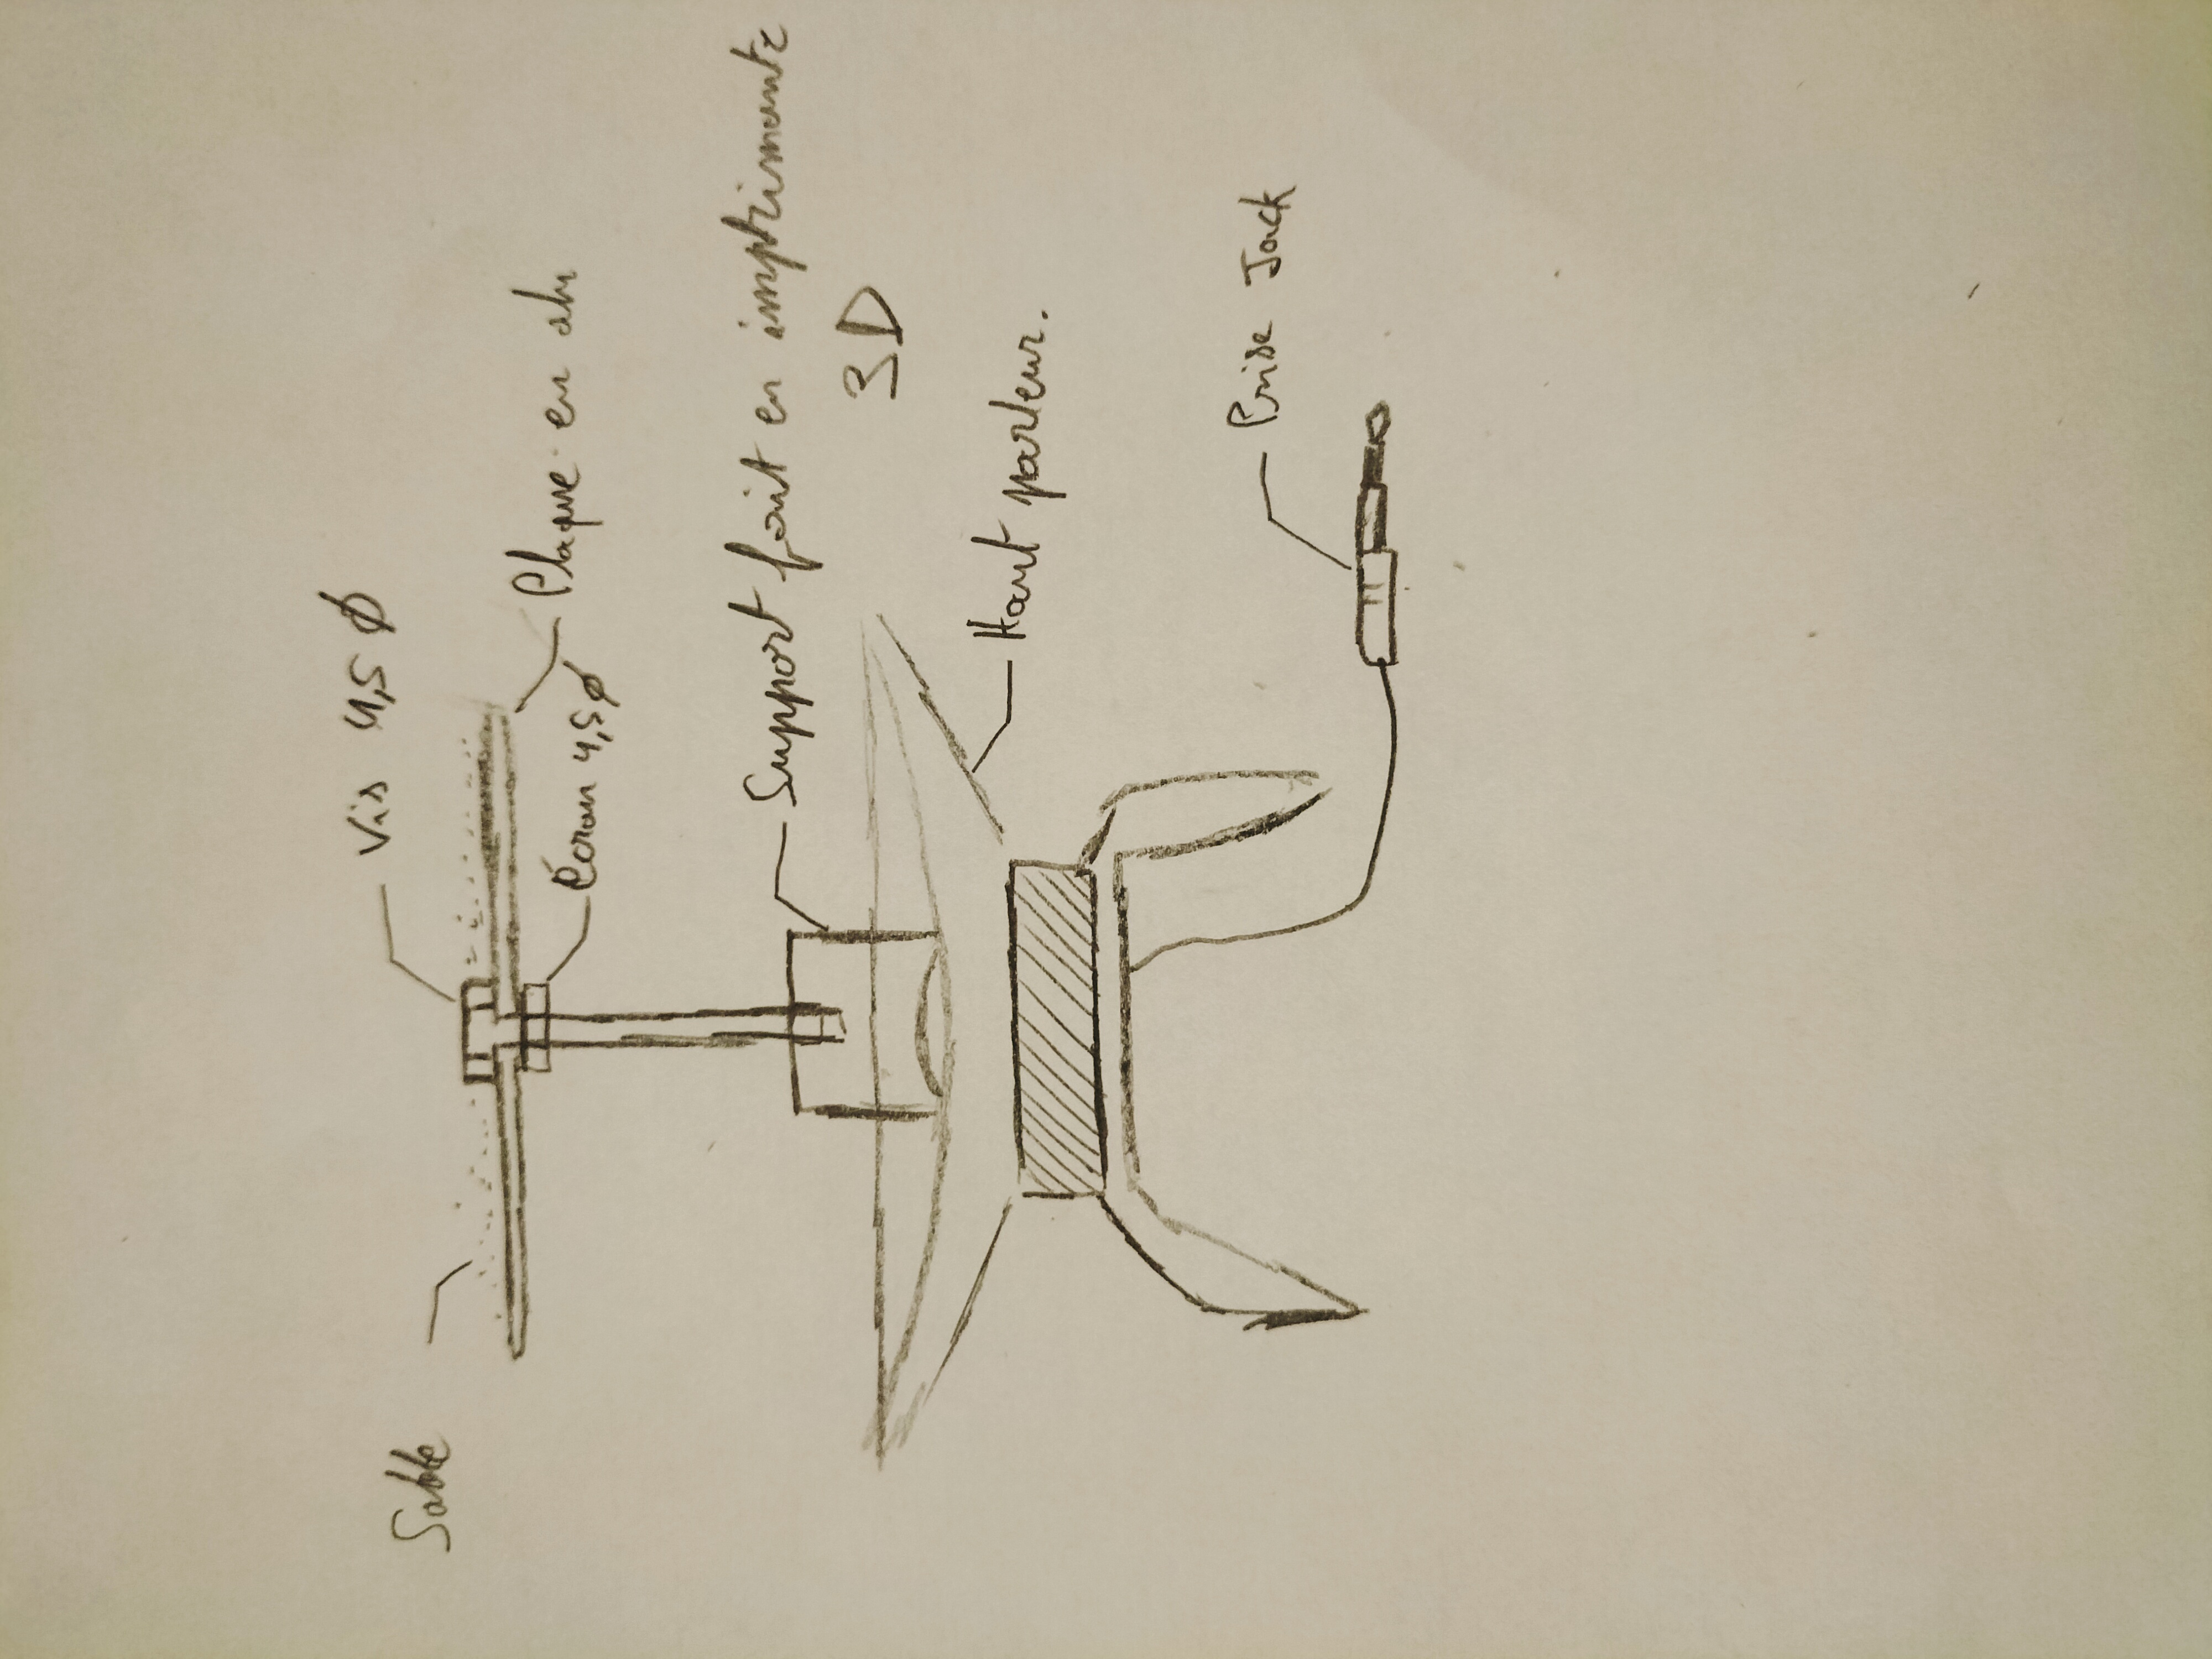 Sable
Vis 4,5 Ø
Plaque en alu
Écrou 4,5 Ø
Support fait en imptrimante
3D
Haut parleur.
Prise Jack